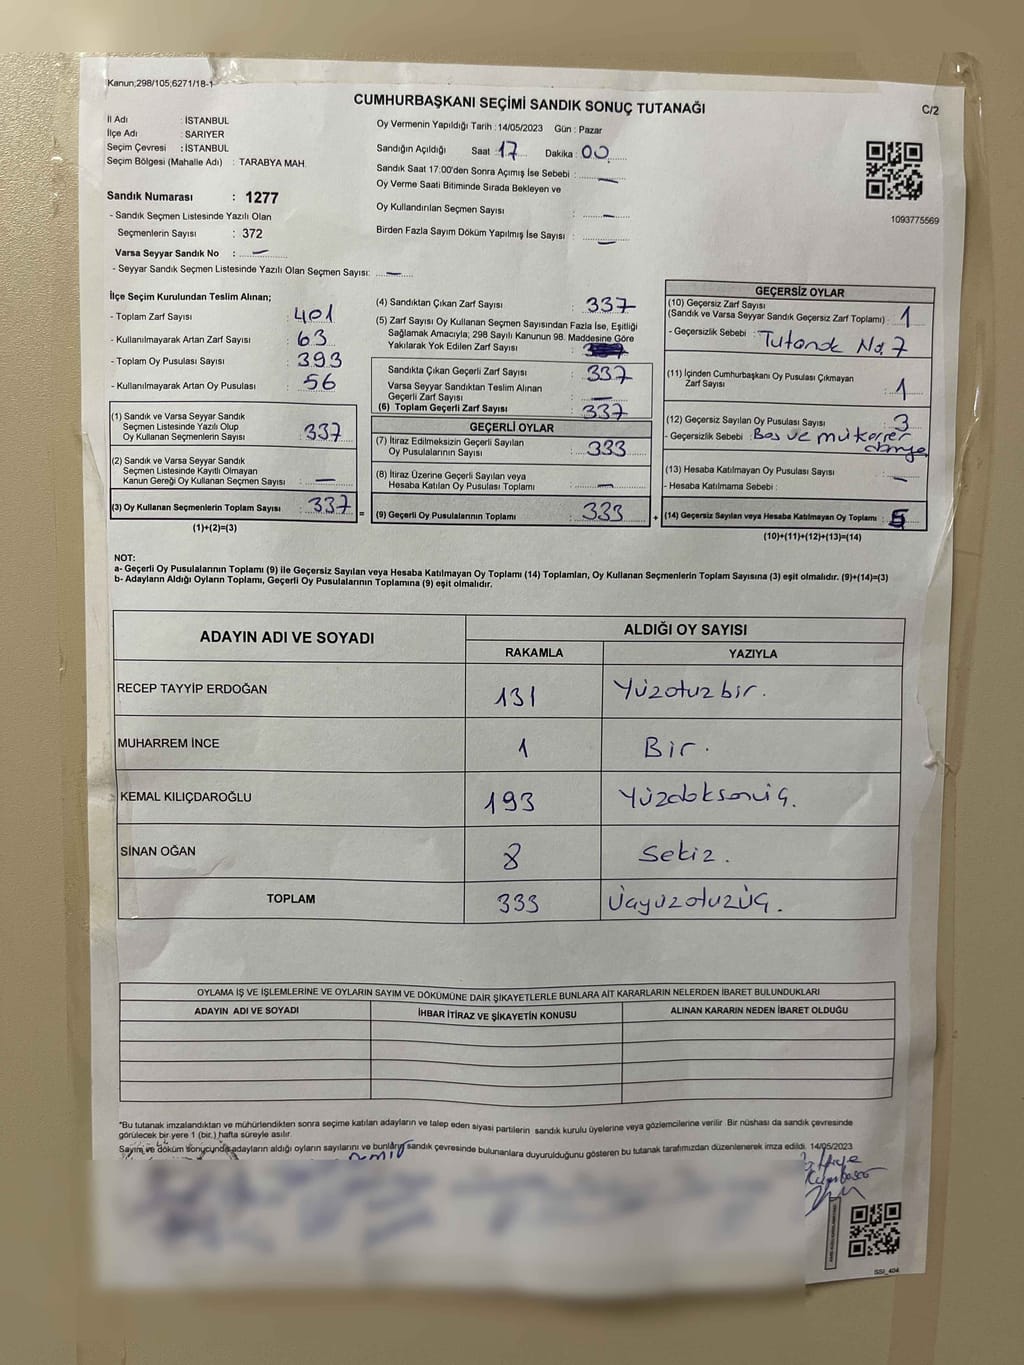 Kanun;298/105;6271/18-1
CUMHURBAŞKANI SEÇİMİ SANDIK SONUÇ TUTANAĞI
C/2
İl Adı : İSTANBUL
İlçe Adı : SARIYER
Seçim Çevresi : İSTANBUL
Seçim Bölgesi (Mahalle Adı) : TARABYA MAH.
Sandık Numarası : 1277
- Sandık Seçmen Listesinde Yazılı Olan
Seçmenlerin Sayısı : 372
Varsa Seyyar Sandık No : —
- Seyyar Sandık Seçmen Listesinde Yazılı Olan Seçmen Sayısı: —
Oy Vermenin Yapıldığı Tarih : 14/05/2023 Gün : Pazar
Sandığın Açıldığı Saat 17 Dakika : 00
Sandık Saat 17.00'den Sonra Açımış İse Sebebi : —
Oy Verme Saati Bitiminde Sırada Bekleyen ve
Oy Kullandırılan Seçmen Sayısı : —
Birden Fazla Sayım Döküm Yapılmış İse Sayısı : —
1093775569
İlçe Seçim Kurulundan Teslim Alınan;
- Toplam Zarf Sayısı : 401
- Kullanılmayarak Artan Zarf Sayısı : 63
- Toplam Oy Pusulası Sayısı : 393
- Kullanılmayarak Artan Oy Pusulası : 56
(1) Sandık ve Varsa Seyyar Sandık
Seçmen Listesinde Yazılı Olup
Oy Kullanan Seçmenlerin Sayısı : 337
(2) Sandık ve Varsa Seyyar Sandık
Seçmen Listesinde Kayıtlı Olmayan
Kanun Gereği Oy Kullanan Seçmen Sayısı : —
(3) Oy Kullanan Seçmenlerin Toplam Sayısı : 337 =
(1)+(2)=(3)
(4) Sandıktan Çıkan Zarf Sayısı : 337
(5) Zarf Sayısı Oy Kullanan Seçmen Sayısından Fazla İse, Eşitliği
Sağlamak Amacıyla, 298 Sayılı Kanunun 98. Maddesine Göre
Yakılarak Yok Edilen Zarf Sayısı :
Sandıkta Çıkan Geçerli Zarf Sayısı : 337
Varsa Seyyar Sandıktan Teslim Alınan
Geçerli Zarf Sayısı : —
(6) Toplam Geçerli Zarf Sayısı : 337
GEÇERLİ OYLAR
(7) İtiraz Edilmeksizin Geçerli Sayılan
Oy Pusulalarının Sayısı : 333
(8) İtiraz Üzerine Geçerli Sayılan veya
Hesaba Katılan Oy Pusulası Toplamı : —
(9) Geçerli Oy Pusulalarının Toplamı : 333 +
GEÇERSİZ OYLAR
(10) Geçersiz Zarf Sayısı
(Sandık ve Varsa Seyyar Sandık Geçersiz Zarf Toplamı) : 1
- Geçersizlik Sebebi : Tutanak No, 7
(11) İçinden Cumhurbaşkanı Oy Pusulası Çıkmayan
Zarf Sayısı : 1
(12) Geçersiz Sayılan Oy Pusulası Sayısı : 3
- Geçersizlik Sebebi : Boş ve mükerrer
(13) Hesaba Katılmayan Oy Pusulası Sayısı : —
- Hesaba Katılmama Sebebi :
(14) Geçersiz Sayılan veya Hesaba Katılmayan Oy Toplamı : 5
(10)+(11)+(12)+(13)=(14)
NOT:
a- Geçerli Oy Pusulalarının Toplamı (9) ile Geçersiz Sayılan veya Hesaba Katılmayan Oy Toplamı (14) Toplamları, Oy Kullanan Seçmenlerin Toplam Sayısına (3) eşit olmalıdır. (9)+(14)=(3)
b- Adayların Aldığı Oyların Toplamı, Geçerli Oy Pusulalarının Toplamına (9) eşit olmalıdır.
ADAYIN ADI VE SOYADI ALDIĞI OY SAYISI
RAKAMLA YAZIYLA
RECEP TAYYİP ERDOĞAN 131 Yüzotuzbir.
MUHARREM İNCE 1 Bir.
KEMAL KILIÇDAROĞLU 193 Yüzdoksanüç.
SİNAN OĞAN 8 Sekiz.
TOPLAM 333 Üçyüzotuzüç.
OYLAMA İŞ VE İŞLEMLERİNE VE OYLARIN SAYIM VE DÖKÜMÜNE DAİR ŞİKAYETLERLE BUNLARA AİT KARARLARIN NELERDEN İBARET BULUNDUKLARI
ADAYIN ADI VE SOYADI İHBAR İTİRAZ VE ŞİKAYETİN KONUSU ALINAN KARARIN NEDEN İBARET OLDUĞU
*Bu tutanak imzalandıktan ve mühürlendikten sonra seçime katılan adayların ve talep eden siyasi partilerin sandık kurulu üyelerine veya gözlemcilerine verilir. Bir nüshası da sandık çevresinde
görülecek bir yere 1 (bir.) hafta süreyle asılır.
Sayım ve döküm sonucunda adayların aldığı oyların sayılarını ve bunların sandık çevresinde bulunanlara duyurulduğunu gösteren bu tutanak tarafımızdan düzenlenerek imza edildi. 14/05/2023
SSİ_404